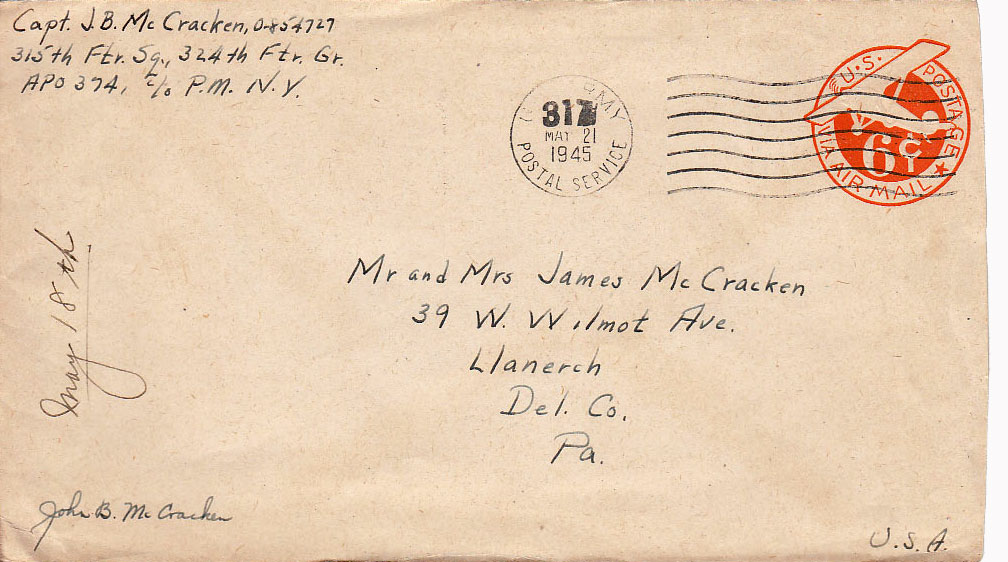 Capt. J. B. McCracken, O-854727
315th Ftr. Sq., 324th Ftr. Gr.
APO 374, c/o P.M. N.Y.
ARMY
317
MAY 21
1945
POSTAL SERVICE
U.S. POSTAGE
6¢
VIA AIR MAIL
Mr and Mrs James McCracken
39 W. Wilmot Ave.
Llanerch
Del. Co.
Pa.
May 18th
John B. McCracken
U.S.A.